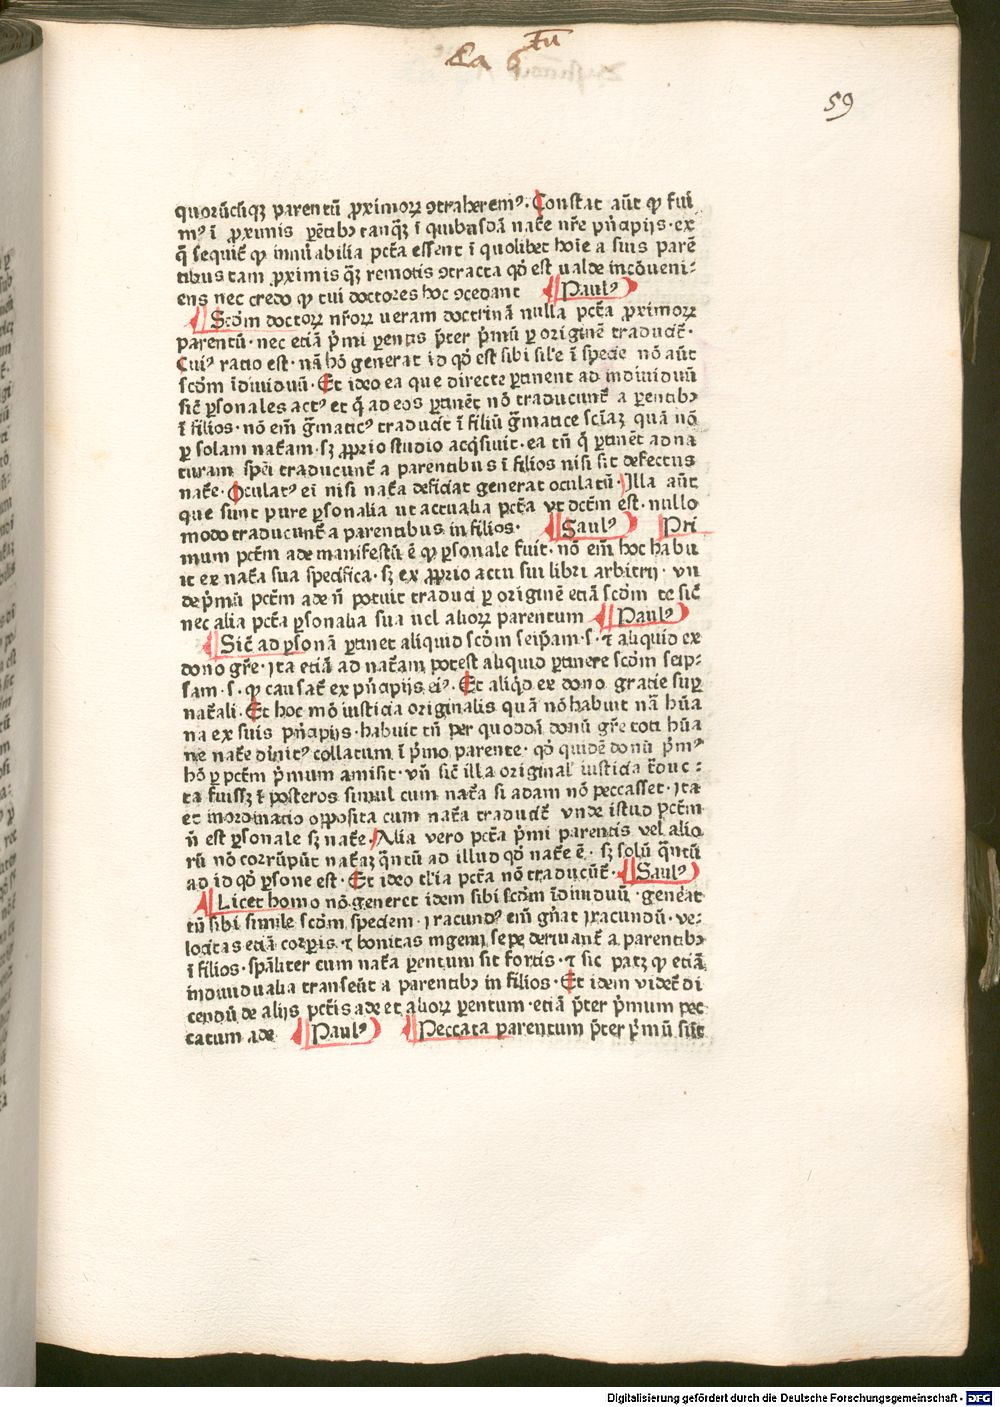 Ca 6 tu
59
quorūcūqꝫ parentū ꝓximoꝝ ꝯtraheremꝰ · Constat aūt ꝙ fui
mꝰ ī ꝓximis pētibꝫ tanqꝫ ī quibusdā nat̄e nr̄e pn̄apijs · ex
q̄ sequit̄ ꝙ innūabilia pct̄a essent ī quolibet hoīe a suis parē
tibus tam ꝓximis qꝫ remotis ꝯtracta qd̄ est ualde incōueni-
ens nec credo ꝙ tui doctores hoc ꝯcedant Paulꝰ
Scd̄m doctoꝝ nr̄oꝝ ueram doctrinā nulla pct̄a ꝓximoꝝ
parentū · nec etiā pͥmi ꝑentis pͣter pͥmū ꝑ originē traducit̄ ·
Cuiꝰ ratio est · nā hō generat id qd̄ est sibi sil'e ī specie nō aūt
scd̄m īdiuiduū · Et ideo ea que directe ꝑtinent ad indiuiduū
sic̄ ꝑsonales actꝰ et q̄ ad eos ꝑtinēt nō traducunt̄ a ꝑentibꝫ
ī filios · nō em̄ gͣmaticꝰ traducit ī filiū gͣmatice sciāꝫ quā nō
ꝑ solam nat̄am · sꝫ ꝓprio studio acq̄siuit · ea tn̄ q̄ ꝑtinēt ad na
turam spēi traducunt̄ a parentibus ī filios nisi sit defectus
nat̄e · Oculatꝰ ei nisi nat̄a deficiat generat oculatū · Illa aūt
que sunt pure ꝑsonalia ut actualia pct̄a ut dct̄m est · nullo
modo traducunt̄ a parentibus in filios · Saulꝰ Pri
mum pct̄m ade manifestū ē ꝙ ꝑsonale fuit · nō em̄ hoc habu
it ex nat̄a sua specifica · sꝫ ex ꝓprio actu sui libri arbitrij · vn
de pͥmū pct̄m ade n̄ potuit traduci ꝑ originē etiā scd̄m te sic̄
nec alia pct̄a ꝑsonalia sua uel alioꝝ parentum Paulꝰ
Sic̄ ad ꝑsonā ꝑtinet aliquid scd̄m seip̄am · s · ⁊ aliquid ex
dono gr̄e · Ita etiā ad nat̄am potest aliquid ꝑtinere scd̄m seip-
sam · s · ꝙ causat̄ ex pn̄apijs eiꝰ · Et aliqͥd ex dono gratie suꝑ
nat̄ali · Et hoc mō iusticia originalis quā nō habuit nā hūa
na ex suis pn̄apijs · habuit tn̄ per quoddā donū gr̄e toti hūa
ne nat̄e diīnitꝰ collatum ī pͥmo parente · qd̄ quidē donū pͥmꝰ
hō ꝑ pct̄m pͥmum amisit · vn̄ sic̄ illa original' iusticia t̄duc-
ta fuissꝫ ī posteros simul cum nat̄a si adam nō peccasset · Ita
et inordinatio opposita cum nat̄a traducit̄ vnde istud pct̄m
n̄ est ꝑsonale sꝫ nat̄e · Alia vero pct̄a pͥmi parentis vel alio
rū nō corrūpūt nat̄aꝫ qͣntū ad illud qd̄ nat̄e ē · sꝫ solū qͣntū
ad id qd̄ ꝑsone est · Et ideo t'lia pct̄a nō traducūt̄ · Saulꝰ
Licet homo nō generet idem sibi scd̄m īdiuiduū · generat
tn̄ sibi simile scd̄m speciem · Iracundꝰ em̄ gn̄at iracundū · ve-
locitas etiā corꝑis · ⁊ bonitas ingenij sepe deriuant̄ a parentibꝫ
ī filios · spāliter cum nat̄a ꝑentum sit fortis · ⁊ sic patꝫ ꝙ etiā
indiuidualia transeūt a parentibꝫ in filios · Et idem videt̄ di
cendū de alijs pct̄is ade et alioꝝ ꝑentum · etiā pͣter pͥmum pec
catum ade Paulꝰ Peccata parentum pͣter pͥmū sūt
Digitalisierung gefördert durch die Deutsche Forschungsgemeinschaft - DFG